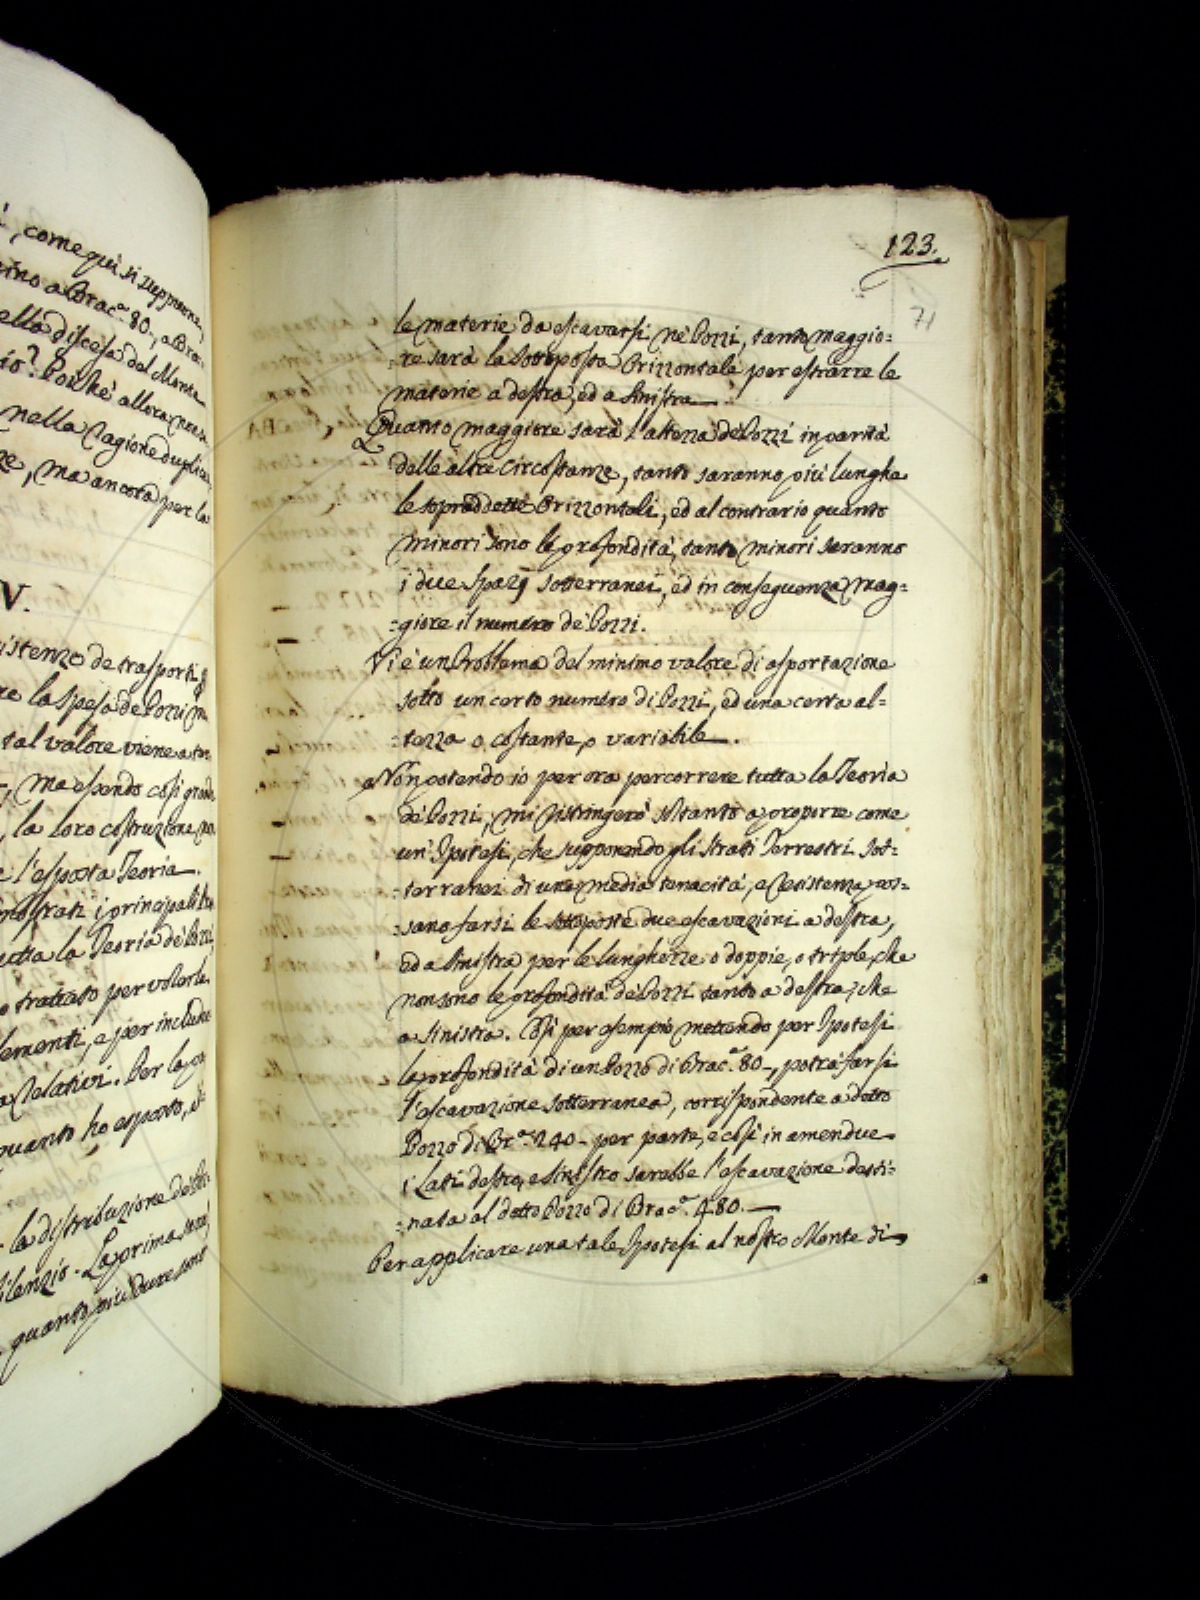 , come quì si suppone,
sino a Brac.ª 80., a Bra-
ella discesa del Monte
io? Poichè allora non si
nella ragione duplica
ze, ma ancora per la
V.
sistenza de trasporti,
re la spesa de Pozzi
tal valore viene a
, ma essendo così grande
, la loro costruzione
e l'esposta Teoria.
mostrati i principali
utta la Teoria de' Pozzi,
o trattato per volerla
lementi, e per includere
a Relativi. Per la
quanto ho esposto,
la distribuzione de'
silenzio. La prima sarà
quanto più dure sono
123.
71
le materie da escavarsi ne' Pozzi, tanto maggio=
=re sarà la sottoposta Orizzontale per estrarre le
materie a destra, ed a sinistra.
Quanto maggiore sarà l'altezza de' Pozzi in parità
delle altre circostanze, tanto saranno più lunghe
le sopraddette Orizzontali, ed al contrario quanto
minori sono le profondità, tanto minori saranno
i due spazj sotterranei, ed in conseguenza mag=
=giore il numero de' Pozzi.
Vi è un Problema del minimo valore di asportazione
sotto un certo numero di Pozzi, ed una certa al=
=tezza o costante, o variabile.
Non potendo io per ora percorrere tutta la Teoria
de' Pozzi, mi ristingerò soltanto a proporre come
un' Ipotesi, che supponendo gli strati Terrestri sot=
=terranei di una media tenacità, e resistenza, pos=
=sano farsi le sottoposte due escavazioni a destra,
ed a sinistra per le lunghezze o doppie, o triple, che
non sono le profondità de' Pozzi tanto a destra, che
a sinistra. Così per esempio mettendo per Ipotesi
la profondità di un Pozzo di Brac.ª 80., potrà farsi
l'escavazione sotterranea, corrispondente a detto
Pozzo di Br.ª 240. per parte, e così in amendue
i Lati destro, e sinistro sarebbe l'escavazione desti=
=nata al detto Pozzo di Brac.ª 480.
Per applicare una tale Ipotesi al nostro Monte di